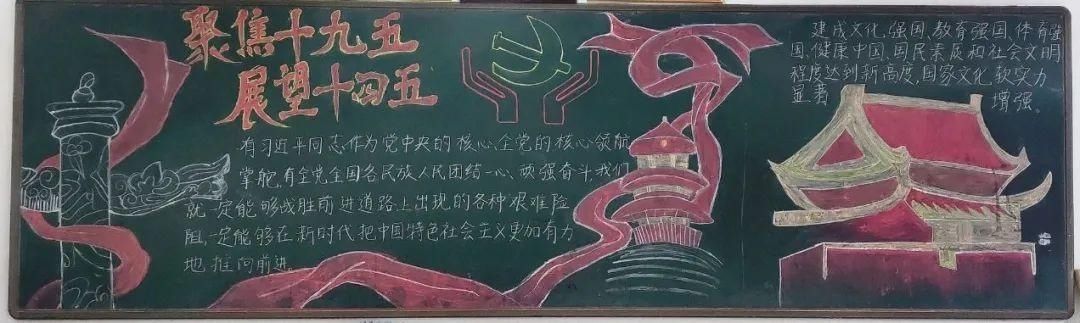 聚焦十九五
展望十四五
有习近平同志作为党中央的核心、全党的核心领航
掌舵,有全党全国各民族人民团结一心、顽强奋斗,我们
就一定能够战胜前进道路上出现的各种艰难险
阻,一定能够在新时代把中国特色社会主义更加有力
地推向前进。
建成文化强国,教育强国,体育强
国,健康中国,国民素质和社会文明
程度达到新高度,国家文化软实力
显著增强。